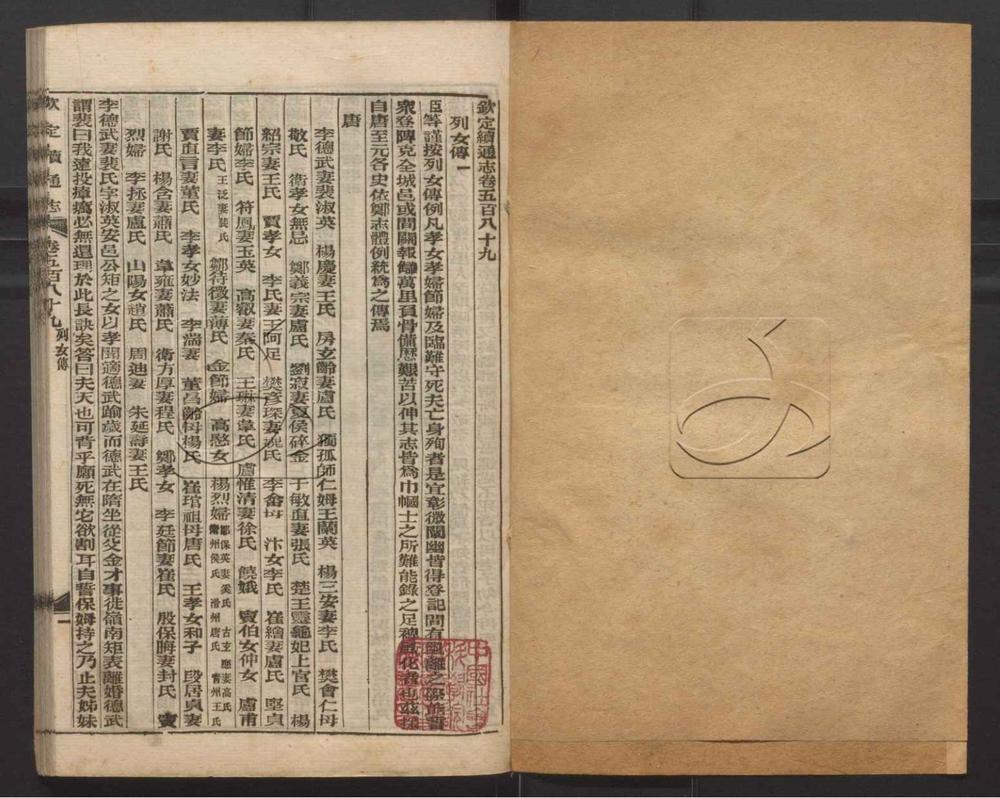 欽定續通志卷五百八十九
列女傳一
臣等謹按列女傳例凡孝女孝婦節婦及臨難守死夫亡身殉者是宜彰微闡幽皆得登記間有亂離之際能
衆登陴克全城邑或間關報讎萬里負骨備歷艱苦以伸其志皆爲巾幗士之所難能錄之足化者也茲
自唐至元各史依鄭志體例統爲之傳焉
唐
李德武妻裴淑英 楊慶妻王氏 房玄齡妻盧氏 獨孤師仁姆王蘭英 楊三安妻李氏 樊會仁母
敬氏 衛孝女無忌 鄭義宗妻盧氏 劉寂妻夏侯碎金 于敏直妻張氏 楚王靈龜妃上官氏 楊
紹宗妻王氏 賈孝女 李氏妻王阿足 樊彥琛妻魏氏 李畬母 汴女李氏 崔繪妻盧氏 堅貞
節婦李氏 符鳳妻玉英 高叡妻秦氏 王琳妻韋氏 盧惟清妻徐氏 饒娥 竇伯女仲女 盧甫
妻李氏 王泛妻裴氏 鄒待徵妻薄氏 金節婦 高愍女 楊烈婦 鄒保英妻奚氏 古玄應妻高氏 衞州侯氏 滑州唐氏 青州王氏
賈直言妻董氏 李孝女妙法 李湍妻 董昌齡母楊氏 崔琯祖母唐氏 王孝女和子 段居貞妻
謝氏 楊含妻蕭氏 韋雍妻蕭氏 衛方厚妻程氏 鄭孝女 李廷節妻崔氏 殷保晦妻封氏 竇
烈婦 李拯妻盧氏 山陽女趙氏 周迪妻 朱延壽妻王氏
李德武妻裴氏字淑英安邑公矩之女以孝聞適德武踰歲而德武在隋坐從父金才事徙嶺南矩表離婚德武
謂裴曰我遠投瘴癘必無還理於此長訣矣答曰夫天也可背乎願死無它欲割耳自誓保姆持之乃止夫姊妹
欽定續通志 卷五百八十九 列女傳 一